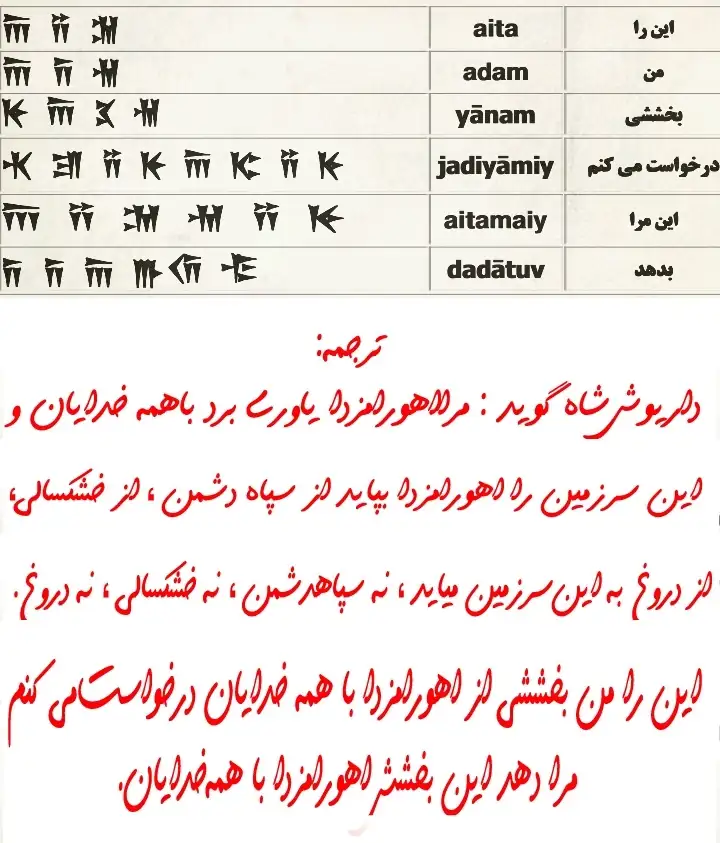 𐎠 𐎡 𐎫 aita این را
𐎠 𐎭 𐎶 adam من
𐎹 𐎠 𐎴 𐎶 yānam بخششی
𐎩 𐎮 𐎡 𐎹 𐎠 𐎷 𐎡 𐎹 jadiyāmiy درخواست می کنم
𐎠 𐎡 𐎫 𐎶 𐎡 𐎹 aitamaiy این مرا
𐎭 𐎭 𐎠 𐎬 𐎢 𐎺 dadātuv بدهد
ترجمه:
داریوش شاه گوید : مرا اهورامزدا یاوری برد باهمه خدایان و
این سرزمین را اهورامزدا بپاید از سپاه دشمن ، از خشکسالی،
از دروغ به این سرزمین میاید ، نه سپاهدشمن ، نه خشکسالی ، نه دروغ.
این را من بخششی از اهورامزدا با همه خدایان درخواست می کنم
مرا دهد این بخشش اهورامزدا با همه خدایان.